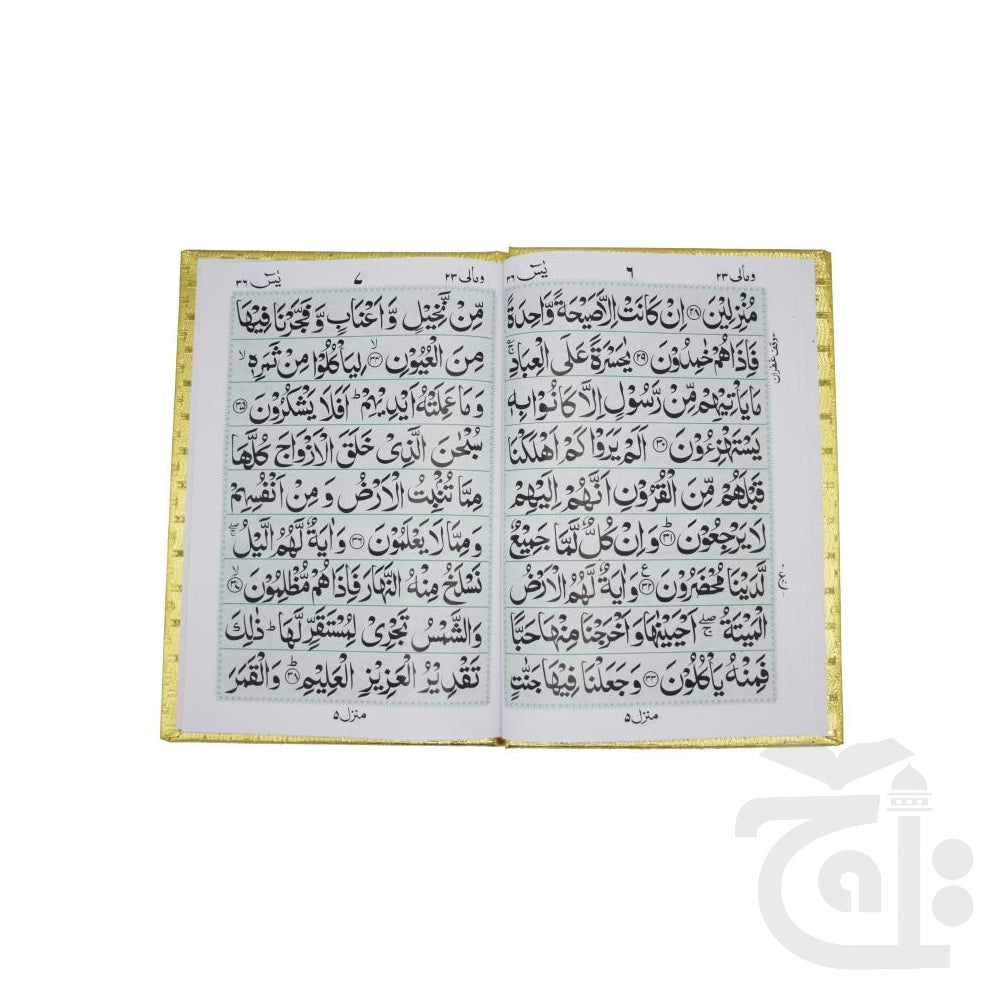 ومالی ۲۳ ۶ یٰسٓ ۳۶
مُنْزِلِیْنَ ۝۲۸ اِنْ كَانَتْ اِلَّا صَیْحَةً وَّاحِدَةً
فَاِذَا هُمْ خٰمِدُوْنَ ۝۲۹ یٰحَسْرَةً عَلَی الْعِبَادِ ۚ
مَا یَاْتِیْهِمْ مِّنْ رَّسُوْلٍ اِلَّا كَانُوْا بِهٖ
یَسْتَهْزِءُوْنَ ۝۳۰ اَلَمْ یَرَوْا كَمْ اَهْلَكْنَا
قَبْلَهُمْ مِّنَ الْقُرُوْنِ اَنَّهُمْ اِلَیْهِمْ
لَا یَرْجِعُوْنَ ۝۳۱ وَاِنْ كُلٌّ لَّمَّا جَمِیْعٌ
لَّدَیْنَا مُحْضَرُوْنَ ۝۳۲ وَاٰیَةٌ لَّهُمُ الْاَرْضُ
الْمَیْتَةُ ۖۚ اَحْیَیْنٰهَا وَاَخْرَجْنَا مِنْهَا حَبًّا
فَمِنْهُ یَاْكُلُوْنَ ۝۳۳ وَجَعَلْنَا فِیْهَا جَنّٰتٍ
منزل ۵
وقف غفران
ومالی ۲۳ ۷ یٰسٓ ۳۶
مِّنْ نَّخِیْلٍ وَّاَعْنَابٍ وَّفَجَّرْنَا فِیْهَا
مِنَ الْعُیُوْنِ ۝۳۴ لِیَاْكُلُوْا مِنْ ثَمَرِهٖ ۙ
وَمَا عَمِلَتْهُ اَیْدِیْهِمْ ؕ اَفَلَا یَشْكُرُوْنَ ۝۳۵
سُبْحٰنَ الَّذِیْ خَلَقَ الْاَزْوَاجَ كُلَّهَا
مِمَّا تُنْۢبِتُ الْاَرْضُ وَمِنْ اَنْفُسِهِمْ
وَمِمَّا لَا یَعْلَمُوْنَ ۝۳۶ وَاٰیَةٌ لَّهُمُ الَّیْلُ ۖۚ
نَسْلَخُ مِنْهُ النَّهَارَ فَاِذَا هُمْ مُّظْلِمُوْنَ ۝۳۷
وَالشَّمْسُ تَجْرِیْ لِمُسْتَقَرٍّ لَّهَا ؕ ذٰلِكَ
تَقْدِیْرُ الْعَزِیْزِ الْعَلِیْمِ ۝۳۸ وَالْقَمَرَ
منزل ۵